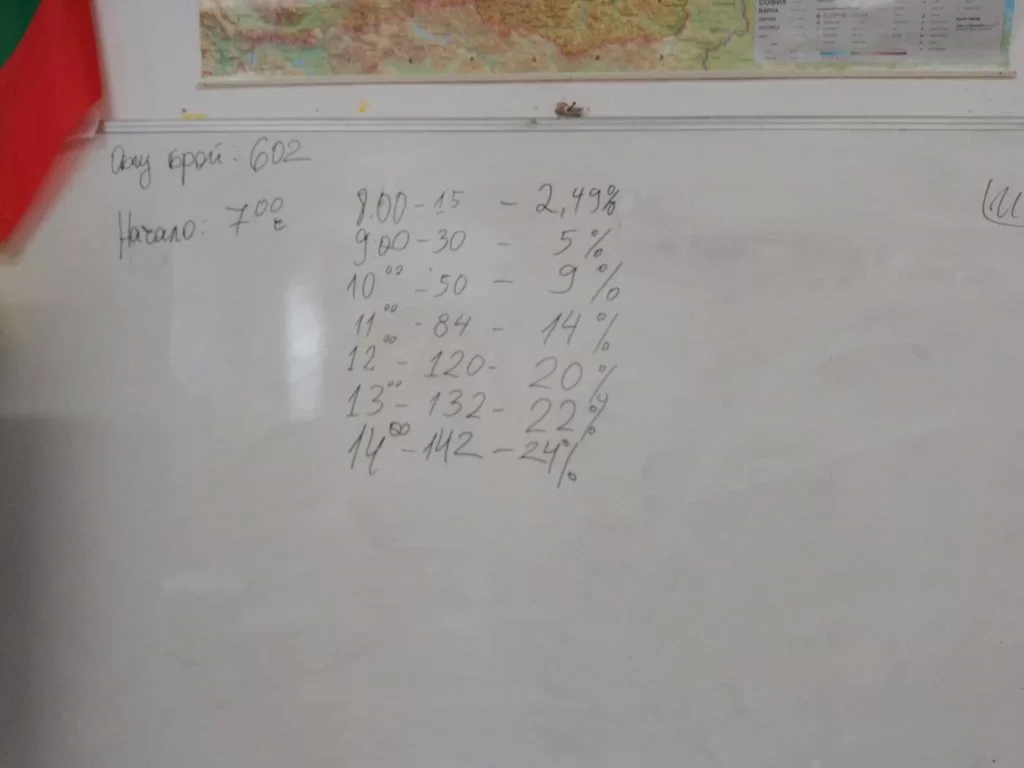 СОФИЯ
ВАРНА
Общ брой: 602
Начало: 7⁰⁰ ч
8.00 - 15 - 2,49%
9.00 - 30 - 5%
10⁰⁰ - 50 - 9%
11⁰⁰ - 84 - 14%
12⁰⁰ - 120 - 20%
13⁰⁰ - 132 - 22%
14⁰⁰ - 142 - 24%